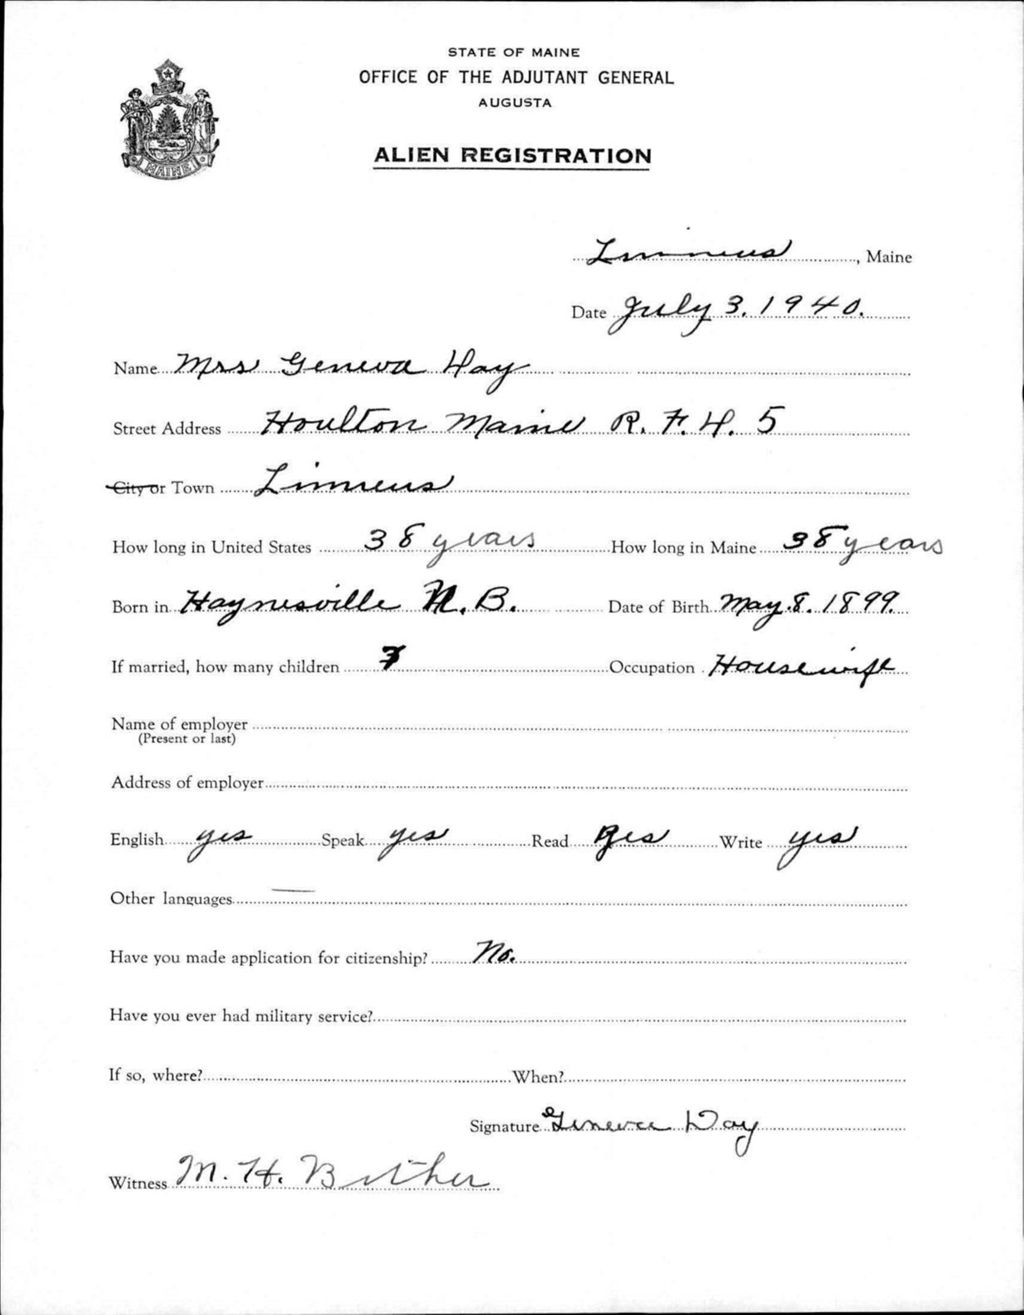 STATE OF MAINE
OFFICE OF THE ADJUTANT GENERAL
AUGUSTA
ALIEN REGISTRATION
MAINE
Linneus, Maine
Date July 3, 1940.
Name Mrs Geneva Day
Street Address Houlton Maine R. F. D. 5
City or Town Linneus
How long in United States 38 years How long in Maine 38 years
Born in Haynesville N. B. Date of Birth May. 8. 1899.
If married, how many children 7 Occupation Housewife
Name of employer
(Present or last)
Address of employer
English yes Speak yes Read yes Write yes
Other languages —
Have you made application for citizenship? No.
Have you ever had military service?
If so, where? When?
Signature Geneva Day
Witness M. H. Bither